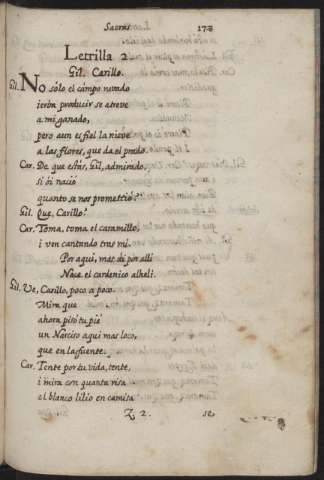 Sacras. 173
Letrilla 2.
Gil. Carillo.
Gil. No solo el campo nevado
ierba producir se atreve
a mi ganado,
pero aun es fiel la nieve
a las flores, que da el prado.
Car. De que estàs, Gil, admirado,
si òi naciò
quanto se nos prometiò?
Gil. Que, Carillo?
Car. Toma, toma el caramillo,
i ven cantando tras mi.
Por aqui, mas ài por alli
Nace el cardenico alheli.
Gil. Ve, Carillo, poco a poco.
Mira que
ahora pisò tu piè
un Narciso aqui mas loco,
que en la fuente.
Car. Tente por tu vida, tente,
i mira con quanta risa
el blanco lilio en camisa
Z 2. se